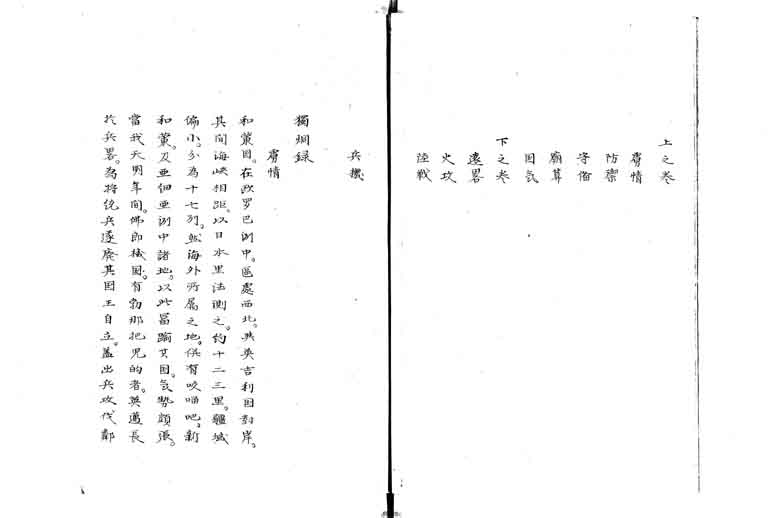 上之卷
虜情
防禦
守備
廟算
固氣
下之卷
遠畧
火攻
陸戰
兵機
獨烟錄
虜情
和蘭国。在欧罗巴洲中。邑處西北。共英吉利国對岸。
其间海峽相距。以日本里法測之。約十二三里。疆域
偏小。分為十七列。然海外所属之地。俱有咬𠺕吧。新
和蘭。及亜佃亜洲中諸地。以此富踰其国。氣勢頗張。
當我天明年间。佛郎機国。有勃那把児的者。英邁長
於兵畧。為将統兵遂廃其国王自立。蓋出兵攻伐鄰